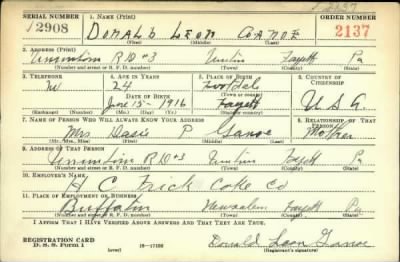 SERIAL NUMBER 1. NAME (Print) ORDER NUMBER
2908 DONALD LEON GANOE 2137
(First) (Middle) (Last)
2. ADDRESS (Print)
Uniontown R D #3 Fayett Pa
(Number and street or R. F. D. number) (Town) (County) (State)
3. TELEPHONE 4. AGE IN YEARS 5. PLACE OF BIRTH 6. COUNTRY OF CITIZENSHIP
24
DATE OF BIRTH (Town)
June 15 - 1916 Fayett U S A.
(Exchange) (Number) (Mo.) (Day) (Yr.) (State or country)
7. NAME OF PERSON WHO WILL ALWAYS KNOW YOUR ADDRESS 8. RELATIONSHIP OF THAT PERSON
Mrs. P Ganoe Mother
(Mr., Mrs., Miss) (First) (Middle) (Last)
9. ADDRESS OF THAT PERSON
Uniontown R D #3 Fayett Pa
(Number and street or R. F. D. number) (Town) (County) (State)
10. EMPLOYER'S NAME
H C Frick Coke Co
11. PLACE OF EMPLOYMENT OR BUSINESS
Fayett Pa
(Number and street or R. F. D. number) (Town) (County) (State)
I AFFIRM THAT I HAVE VERIFIED ABOVE ANSWERS AND THAT THEY ARE TRUE.
REGISTRATION CARD
D. S. S. Form 1 (over) Donald Leon Ganoe
(Registrant's signature)